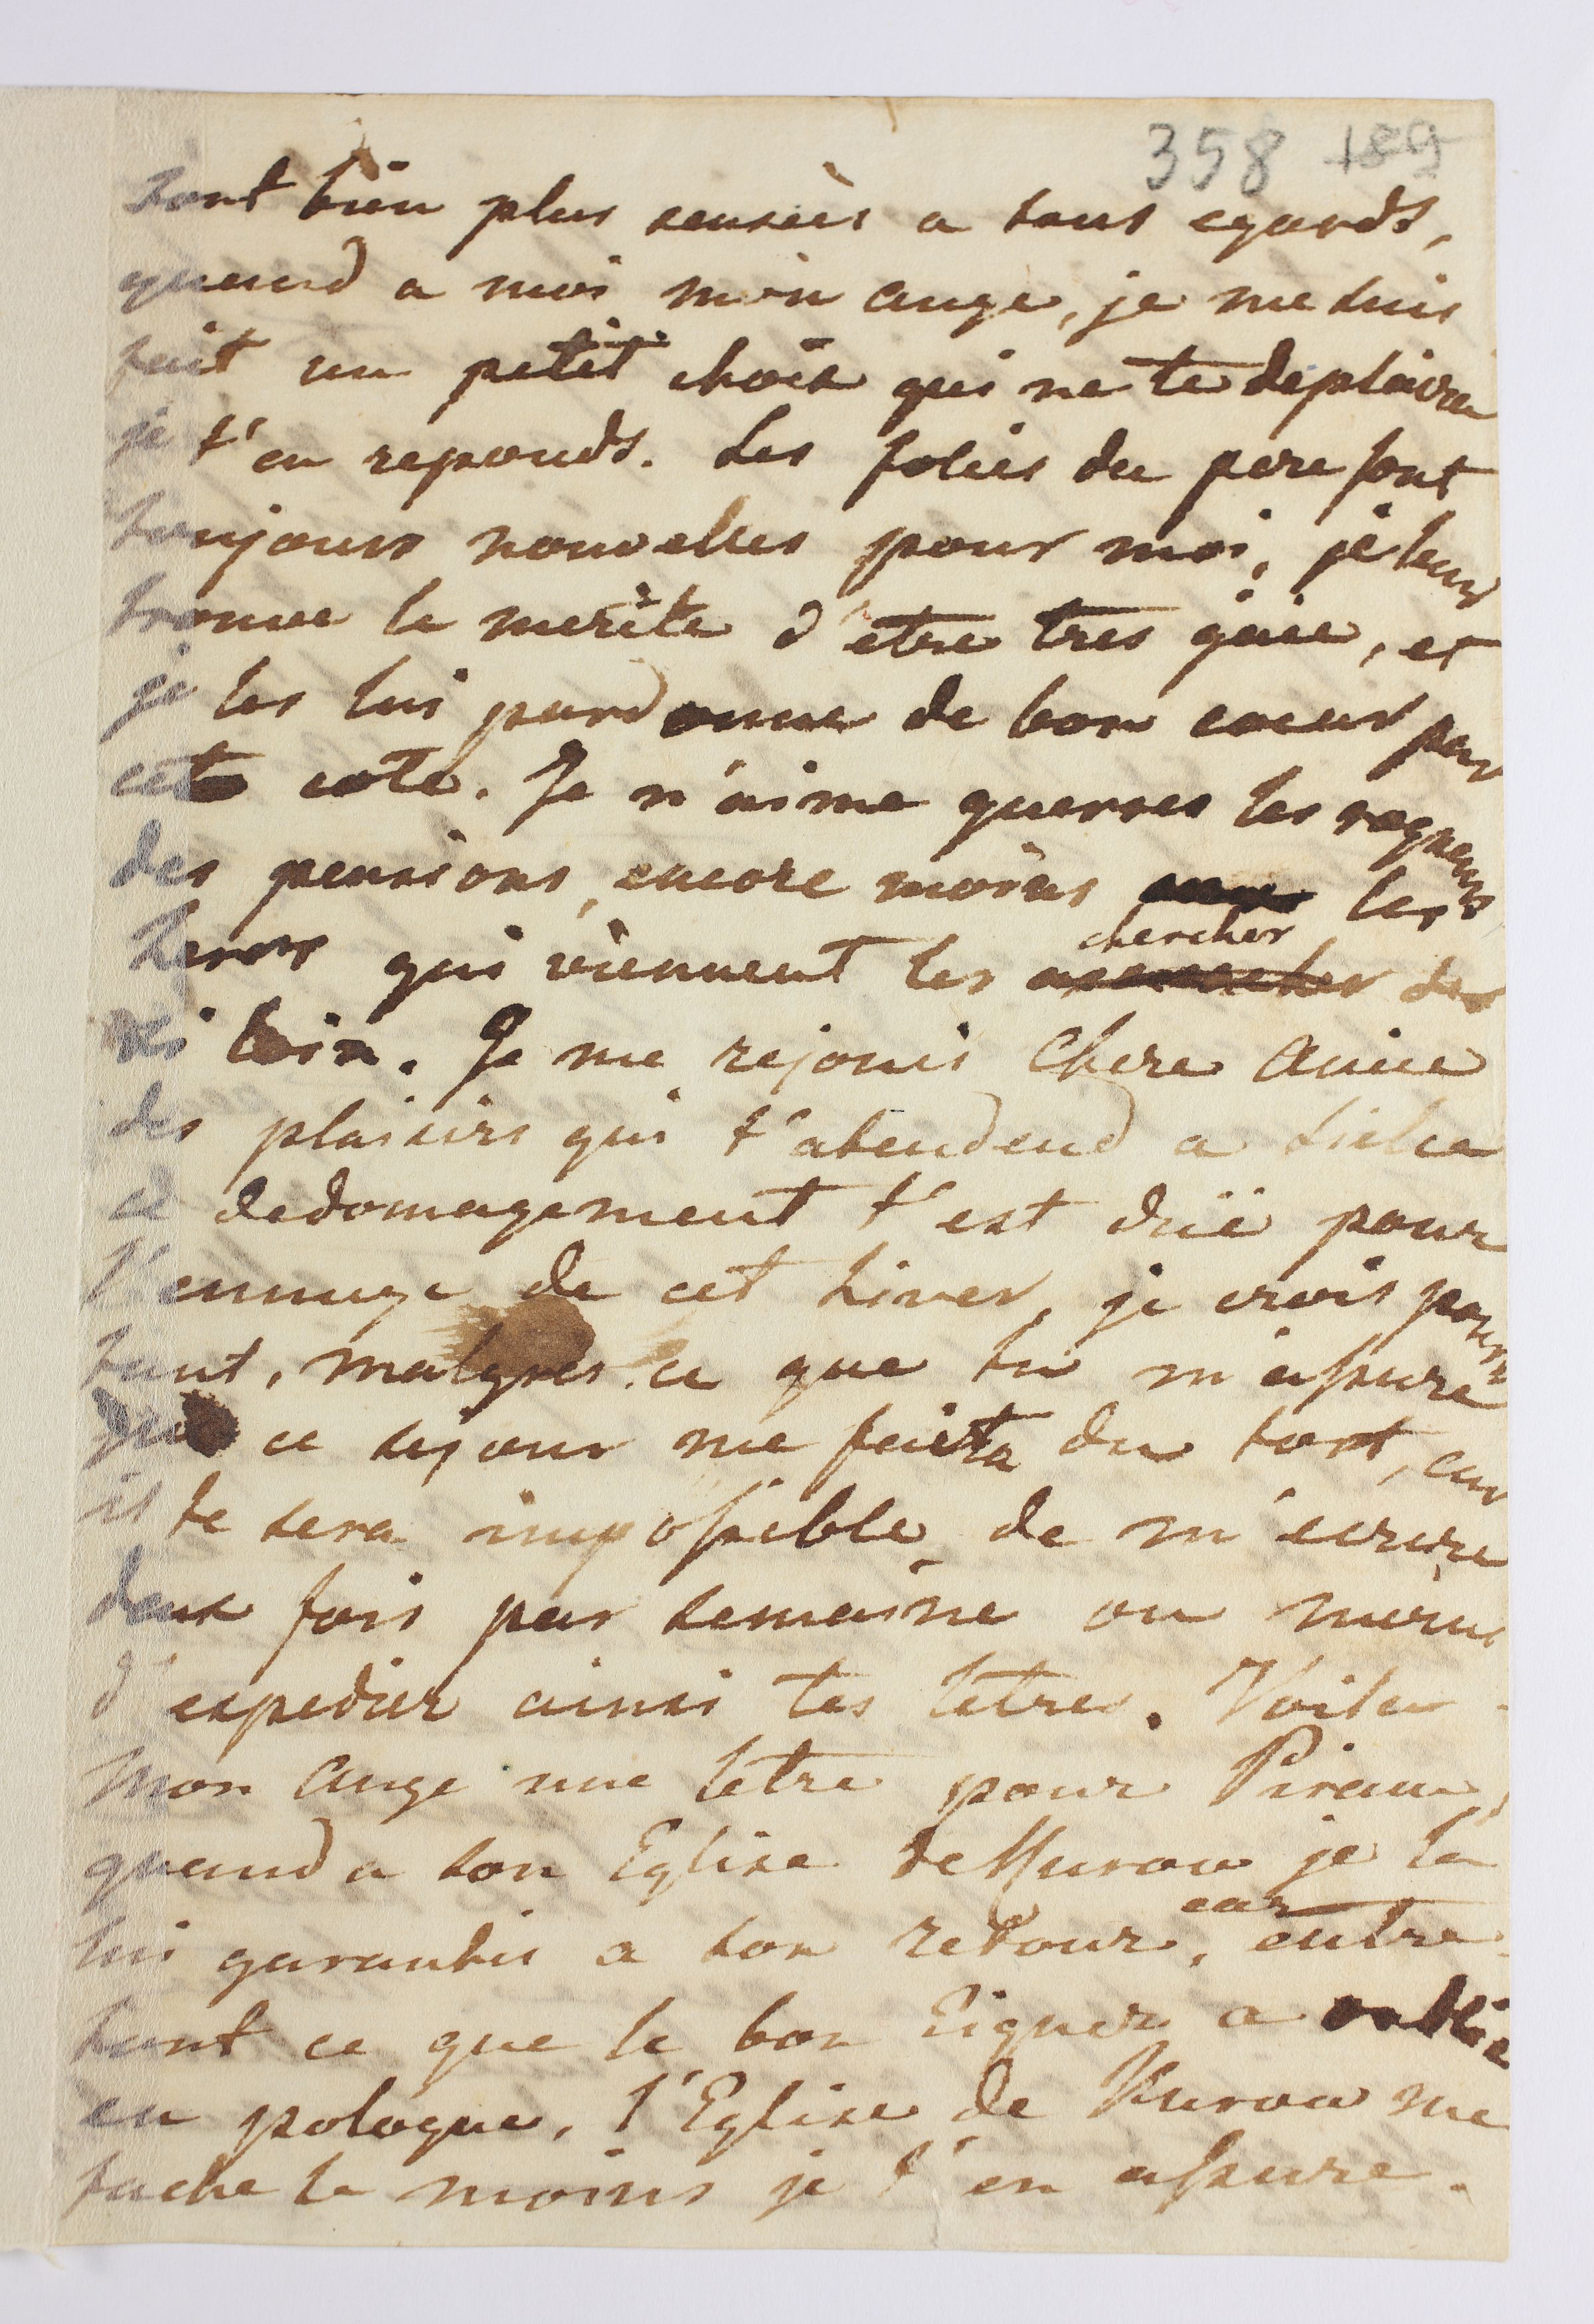 358 189
sont bien plus sensèes a tous egards,
quand a moi mon ange, je me suis
fait un petit choix qui ne te deplaira
je t'en reponds. Les folies du pere sont
toujours nouvelles pour moi, je leur
trouve le merite d'etre tres gaie, et
je les lui pardonne de bon coeur par
cet cote. Je n'aime guerres les rogneurs
des pensions, encore moins les
heros qui viennent les chercher de
si loin. Je me rejouis Chere Amie
des plaisirs qui t'atendend a
ce dedomagement t'est düe pour
l'ennuye de cet hiver, je crois pour
tant, malgres ce que tu m'assure
que ce sejour me feira du tort, car
il te sera impossible de m'ecrire
deux fois par semaine ou meme
d'expedier ainsi tes letres. Voila
mon Ange une letre pour Piram,
quand a ton Eglise de Kurow je la
lui garantis a ton retour, car entre
tout ce que le bon Eigner a oublie
en pologne, l'Eglise de Kurow me
fache le moins je t'en assure.